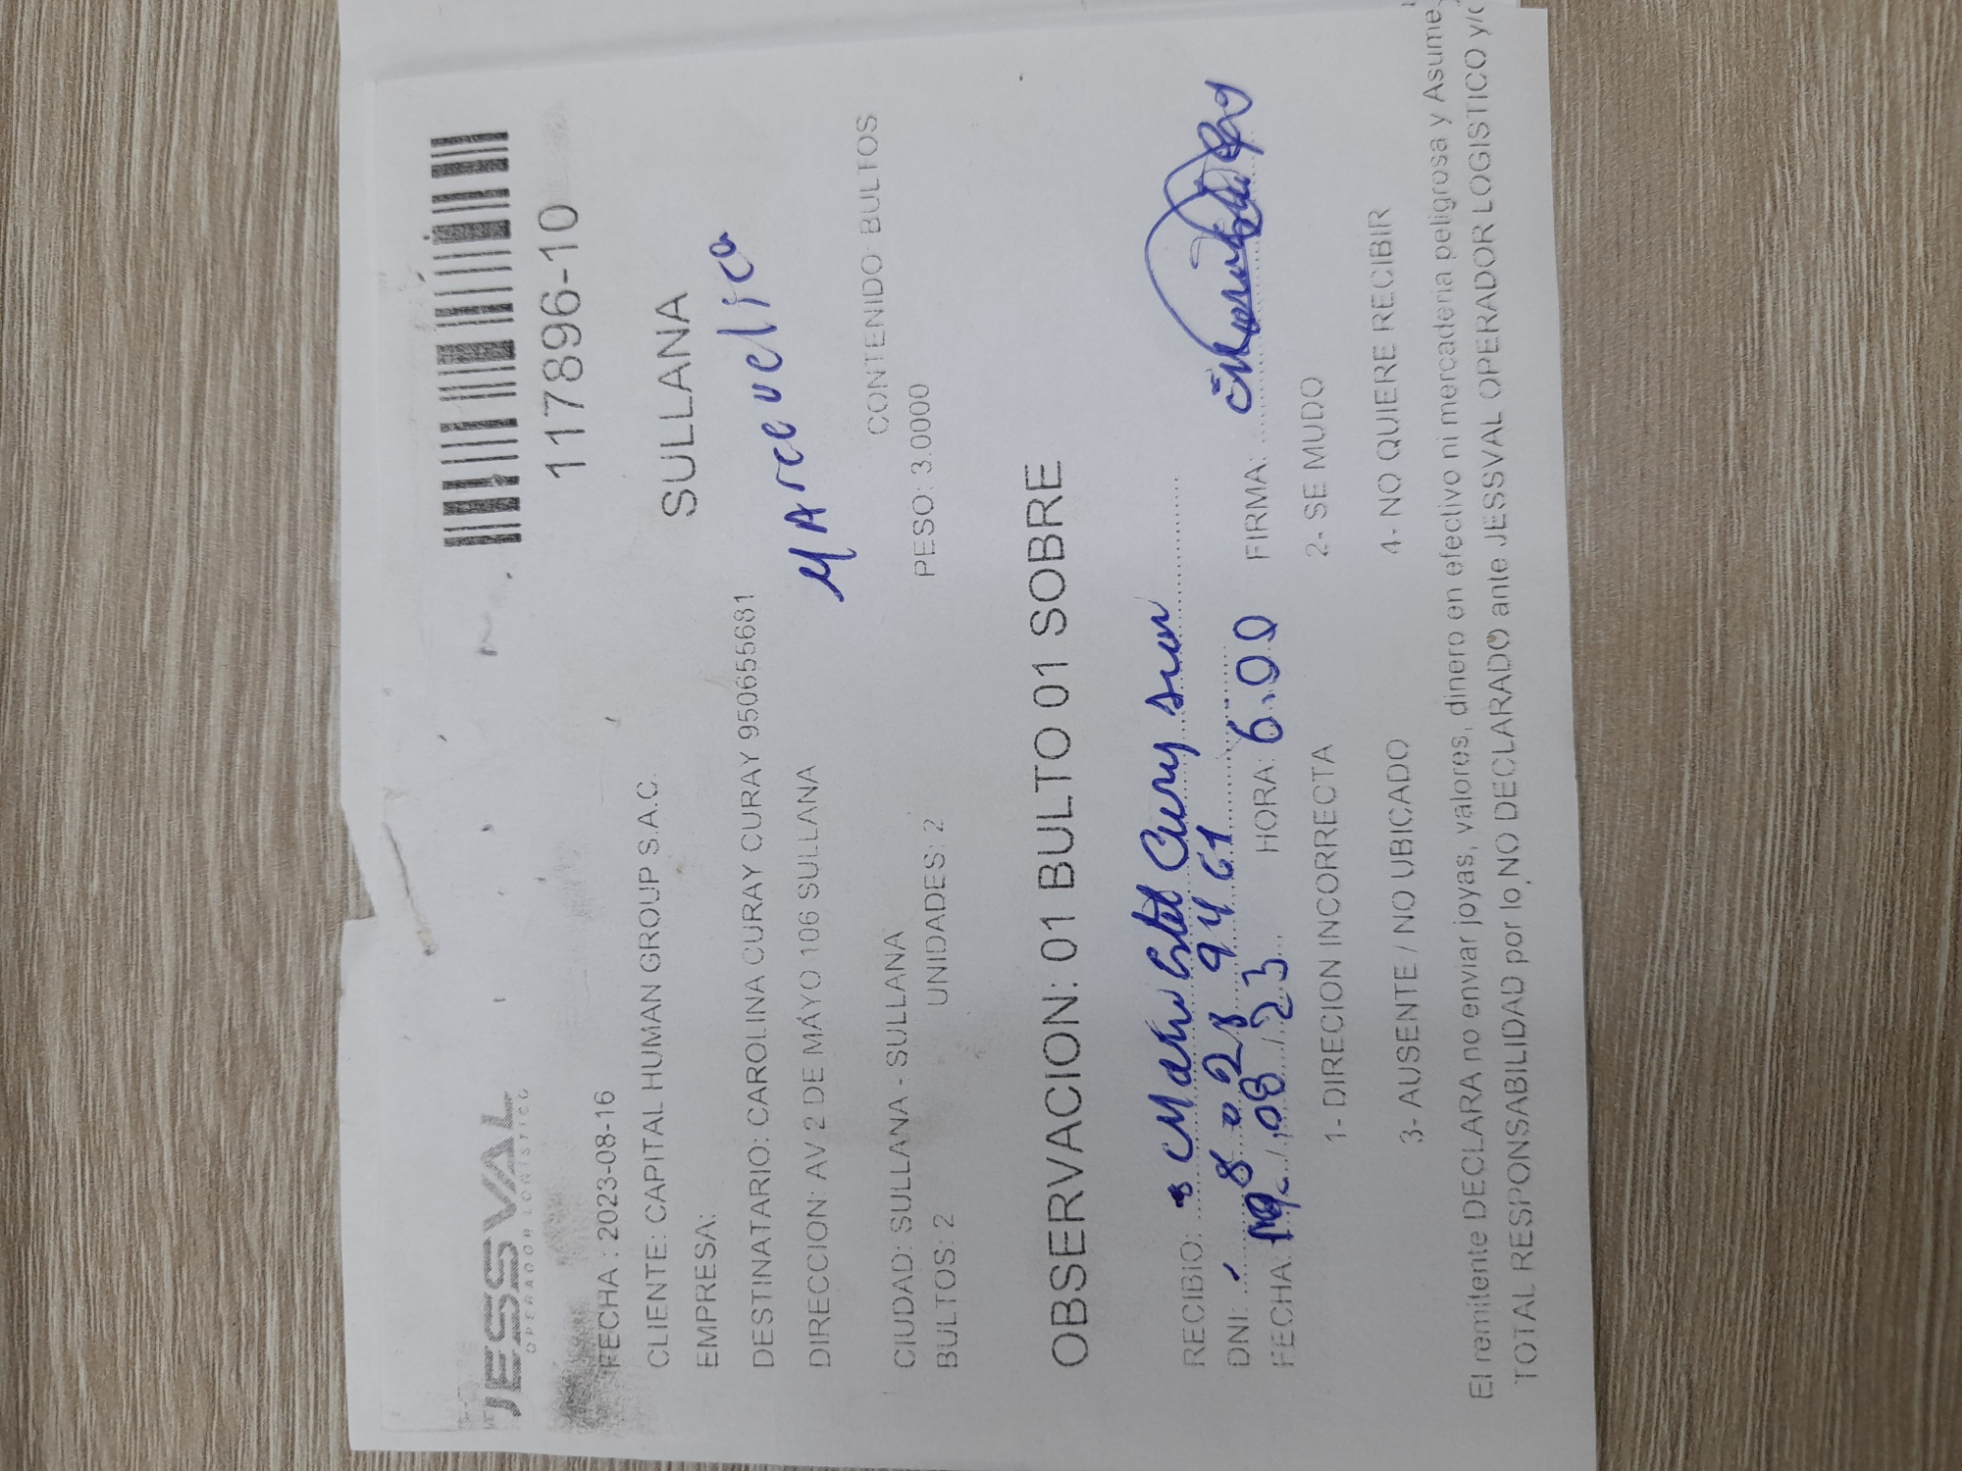 JESSVAL
OPERADOR LOGÍSTICO
117896-10
FECHA : 2023-08-16
CLIENTE: CAPITAL HUMAN GROUP S.A.C.
SULLANA
EMPRESA:
Marcavelica
DESTINATARIO: CAROLINA CURAY CURAY 950655681
DIRECCION: AV 2 DE MAYO 106 SULLANA
CONTENIDO: BULTOS
CIUDAD: SULLANA - SULLANA
BULTOS: 2 UNIDADES: 2 PESO: 3.0000
OBSERVACION: 01 BULTO 01 SOBRE
RECIBIO:
DNI: 80289461
FECHA: / 08 / 23 HORA: 6:00 FIRMA:
1- DIRECION INCORRECTA 2- SE MUDO
3- AUSENTE / NO UBICADO 4- NO QUIERE RECIBIR
El remitente DECLARA no enviar joyas, valores, dinero en efectivo ni mercaderia peligrosa y Asume
TOTAL RESPONSABILIDAD por lo NO DECLARADO ante JESSVAL OPERADOR LOGISTICO y/o